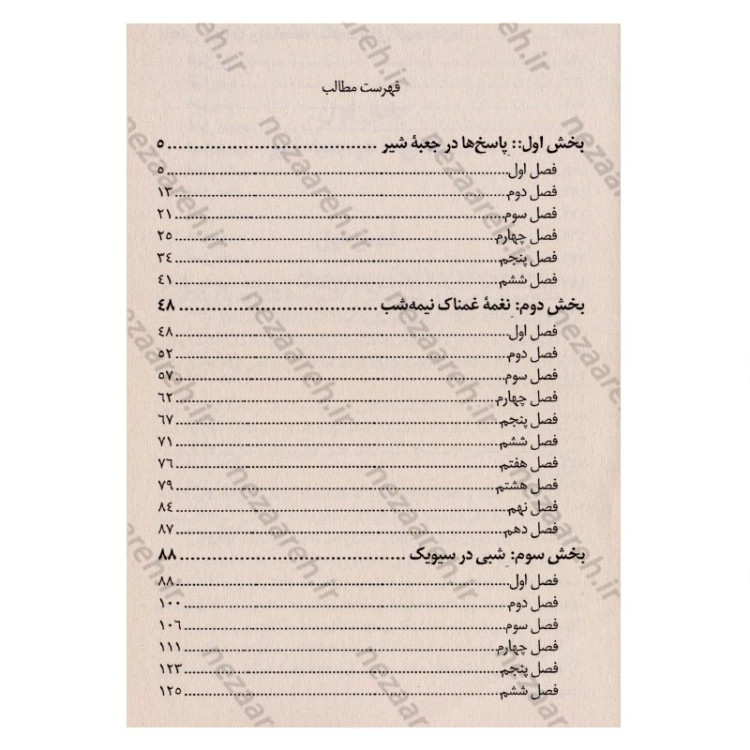 فهرست مطالب
بخش اول:: پاسخ‌ها در جعبهٔ شیر ........ ۵
فصل اول ........ ۵
فصل دوم ........ ۱۳
فصل سوم ........ ۲۱
فصل چهارم ........ ۲۵
فصل پنجم ........ ۳۴
فصل ششم ........ ۴۱
بخش دوم: نغمهٔ غمناک نیمه‌شب ........ ۴۸
فصل اول ........ ۴۸
فصل دوم ........ ۵۲
فصل سوم ........ ۵۷
فصل چهارم ........ ۶۲
فصل پنجم ........ ۶۷
فصل ششم ........ ۷۱
فصل هفتم ........ ۷۶
فصل هشتم ........ ۷۹
فصل نهم ........ ۸۴
فصل دهم ........ ۸۷
بخش سوم: شبی در سیویک ........ ۸۸
فصل اول ........ ۸۸
فصل دوم ........ ۱۰۰
فصل سوم ........ ۱۰۶
فصل چهارم ........ ۱۱۱
فصل پنجم ........ ۱۲۳
فصل ششم ........ ۱۲۵
nezaareh.ir